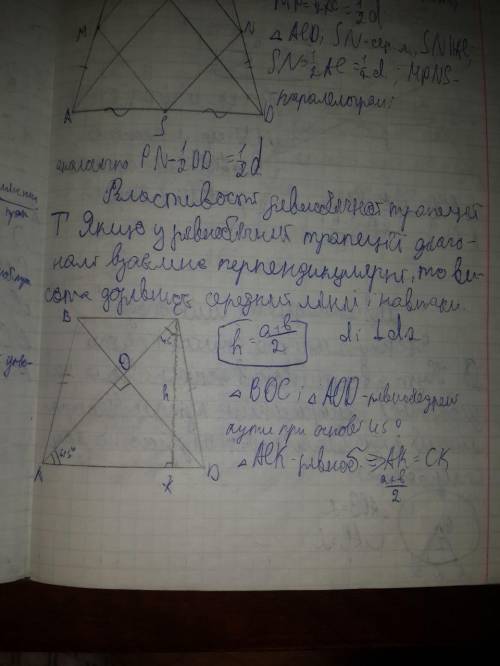 M
N
A
D
S
MP=½AC=½d
△ACD, SN-сер. л, SN∥AC,
SN=½AC=½d; MPNS-
паралелограм;
аналогічно PN=½BD=½d
Властивості рівнобічної трапеції
Т Якщо у рівнобічній трапеції діаго-
налі взаємно перпендикулярні, то ви-
сота дорівнює середній лінії і навпаки.
B
h = a+b/2 d₁⊥d₂
O
45°
h
△BOC; △AOD-рівнобедрені
кути при основі 45°
△ACK-рівноб ⇒ AK=CK
a+b/2
A
45°
K
D